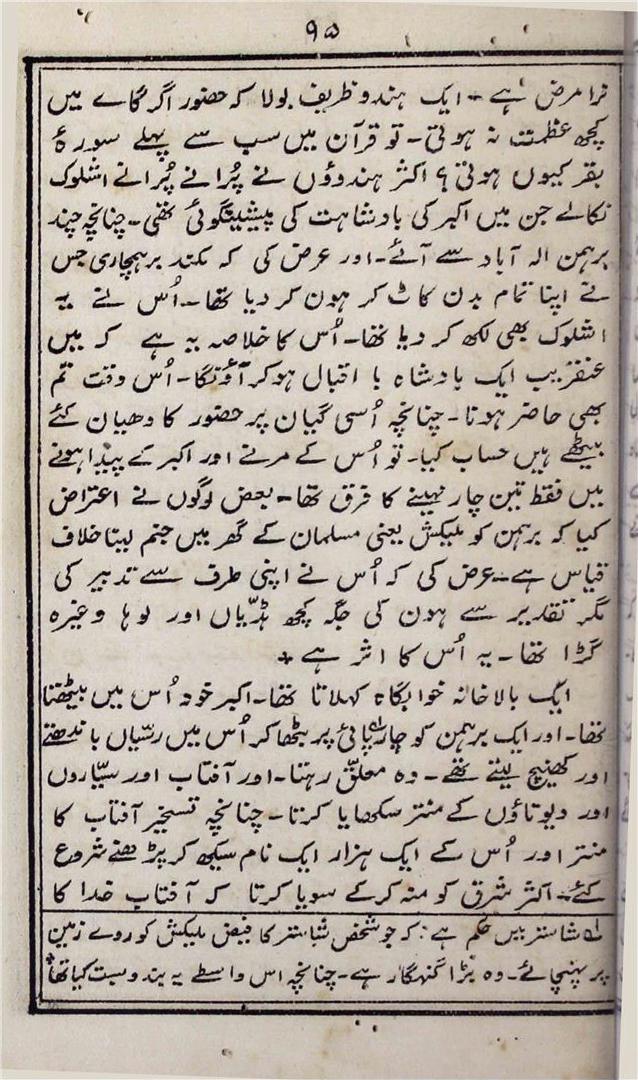 ۹۵
نرا مرض ہے - ایک ہندو ظریف بولا کہ حضور اگر گاے میں
کچھ عظمت نہ ہوتی - تو قرآن میں سب سے پہلے سورۂ
بقر کیوں ہوتی ؟ اکثر ہندوؤں نے پُرانے پُرانے اشلوک
نکالے جن میں اکبر کی بادشاہت کی پیشینگوئی تھی - چنانچہ چند
برہمن الہ آباد سے آئے - اور عرض کی کہ مکند برہمچاری جس
نے اپنا تمام بدن کاٹ کر ہون کر دیا تھا - اُس نے یہ
اشلوک بھی لکھ کر دیا تھا - اُس کا خلاصہ یہ ہے کہ میں
عنقریب ایک بادشاہ با اقبال ہو کر آؤنگا - اُس وقت تم
بھی حاضر ہونا - چنانچہ اُسی گیان پر حضور کا دھیان کئے
بیٹھے ہیں حساب کیا - تو اُس کے مرنے اور اکبر کے پیدا ہونے
میں فقط تین چار مہینے کا فرق تھا - بعض لوگوں نے اعتراض
کیا کہ برہمن کو ملیکش یعنی مسلمان کے گھر میں جنم لینا خلاف
قیاس ہے - عرض کی کہ اُس نے اپنی طرف سے تدبیر کی
مگر تقدیر سے ہون کی جگہ کچھ ہڈّیاں اور لوہا وغیرہ
گڑا تھا - یہ اُس کا اثر ہے +
ایک بالا خانہ خوابگاہ کہلاتا تھا - اکبر خود اُس میں بیٹھتا
تھا - اور ایک برہمن کو چارپائی پر بٹھا کر اُس میں رسّیاں باندھتے
اور کھینچ لیتے تھے - وہ معلّق رہتا - اور آفتاب اور سیّاروں
اور دیوتاؤں کے منتر سکھایا کرتا - چنانچہ تسخیر آفتاب کا
منتر اور اُس کے ایک ہزار ایک نام سیکھ کر پڑھنے شروع
کئے - اکثر شرق کو منہ کر کے سویا کرتا کہ آفتاب خدا کا
لہ شاستر میں حکم ہے : کہ جو شخص شاستر کا فیض ملیکش کو روے زمین
پر پہنچائے - وہ بڑا گنہگار ہے - چنانچہ اس واسطے یہ بندوبست کیا تھا